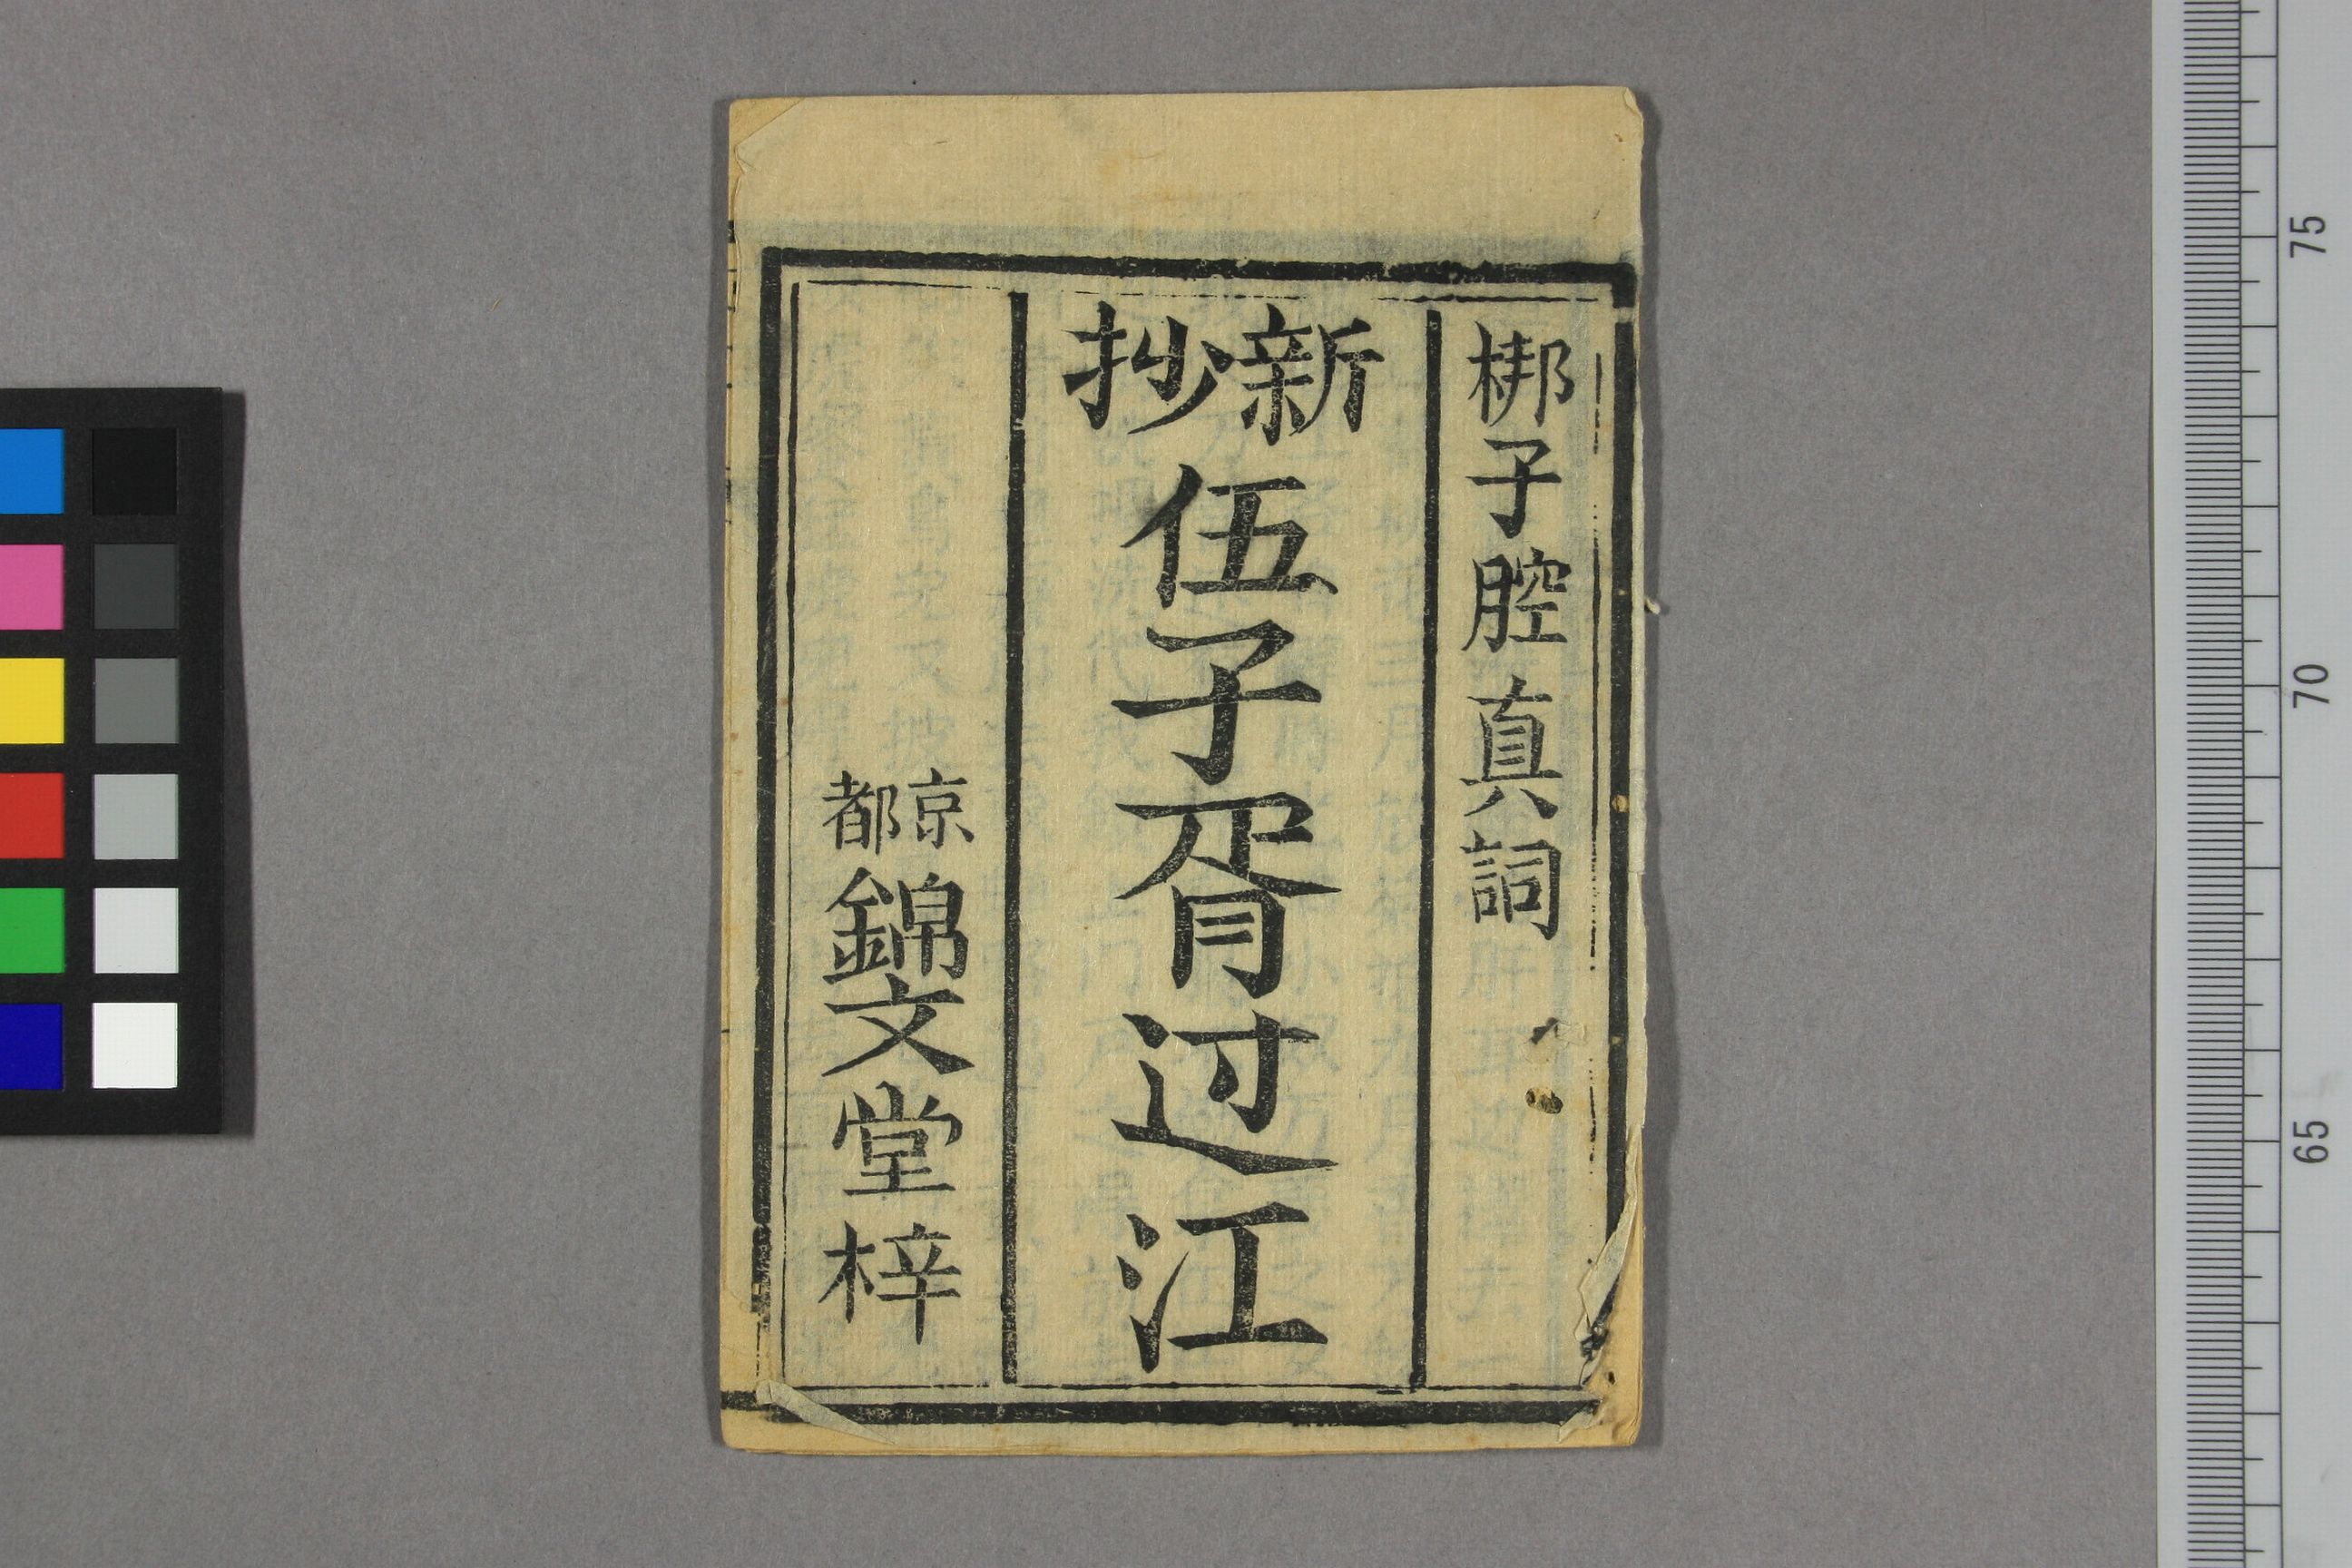 梆子腔真詞
新抄伍子胥过江
京都錦文堂梓
75
70
65